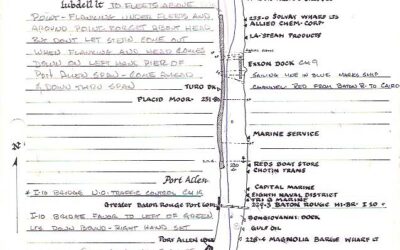 Lubdell Lt TO FLEETS ABOVE
POINT - FLANKING UNDER FLEETS AND
AROUND POINT FORGET ABOUT HEAD
BUT DON'T LET STERN COME OUT
WHEN FLANKING AND HEAD COMES
DOWN ON LEFT HAND PIER OF
PORT ALLEN SPAN - COME AHEAD
& DOWN THRU SPAN
TURO DK
PLACID MOOR-
Port Allen
* I-10 BRIDGE U.S. TRAFFIC CONTROL
GREATER BATON ROUGE PORT COMM
I-10 BRIDGE FAVOR TO LEFT OF GREEN
LTS DOWN BOUND - RIGHT HAND SET
PORT ALLEN
N
235-0 SOLVAY WHARF LTS
ALLIED CHEM-CORP
LA-STEAM PRODUCTS
EXXON DOCK CH 9
SAILING LINE IN BLUE MARKS SHIP
CHANNEL- RED FROM BATON R TO CAIRO
MARINE SERVICE
REDS BOAT STORE
CHOTIN TRANS
CAPITAL MARINE
EIGHTH NAVAL DISTRICT
TRI G MARINE
229-3 BATON ROUGE HI-BR- I 10
BONGIOVANNI DOCK
GULF OIL
228-6 MAGNOLIA BARGE WHARF LT